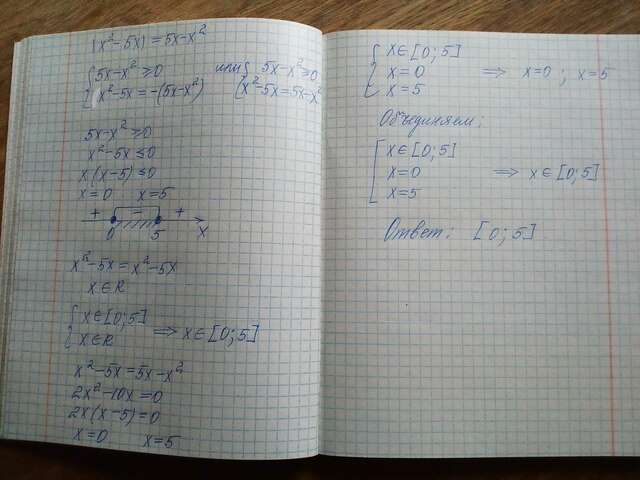 |x²-5x| = 5x-x²
{5x-x² ≥ 0 или {5x-x² ≥ 0
{x²-5x = -(5x-x²) {x²-5x = 5x-x²
5x-x² ≥ 0
x²-5x ≤ 0
x(x-5) ≤ 0
x=0 x=5
+ - +
0 5 x
x²-5x = x²-5x
x∈R
{x∈[0;5]
{x∈R ⟹ x∈[0;5]
x²-5x = 5x-x²
2x²-10x = 0
2x(x-5) = 0
x=0 x=5
{x∈[0;5]
{x=0 ⟹ x=0 ; x=5
{x=5
Объединяем:
[x∈[0;5]
[x=0 ⟹ x∈[0;5]
[x=5
Ответ: [0;5]